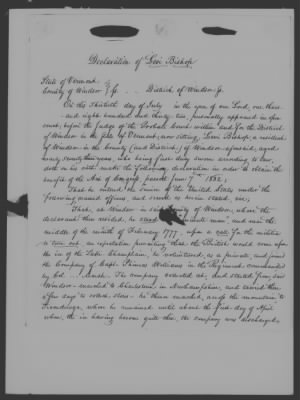 Declaration of Levi Bishop
State of Vermont
County of Windsor } S. . . . District of Windsor S.
On this thirtieth day of July in the year of our Lord, one thou-
sand eight hundred and thirty two personally appeared in open
court, before the Judge of the Probate Court within and for the District
of Windsor in the State of Vermont now sitting, Levi Bishop, a resident
of Windsor in the County (and District) of Windsor aforesaid, aged
nearly seventy two years, who being first duly sworn according to law,
doth on his oath make the following declaration in order to obtain the
benefit of the Act of Congress passed June 7th 1832,
That he entered the service of the United States under the
following named officers, and served as herein stated, viz;
That, at Windsor in said County of Windsor, where the
declarant then resided, he a private man, and near the
middle of the month of February 1777, upon a call for the militia
to turn out, an expectation prevailing that the British would come upon
the in of the Lake Champlain, he volunteered, as a private, and joined
the Company of Capt. Williams in the Regiment commanded
by Col. Marsh. The company assembled at, and started from said
Windsor marched to Charlestown, in Newhampshire, and tarried there
a few days to collect stores he then marched, across the mountain to
Ticonderoga, where he remained until about the first day of April
when, the in having become quite thin, the company was discharged,